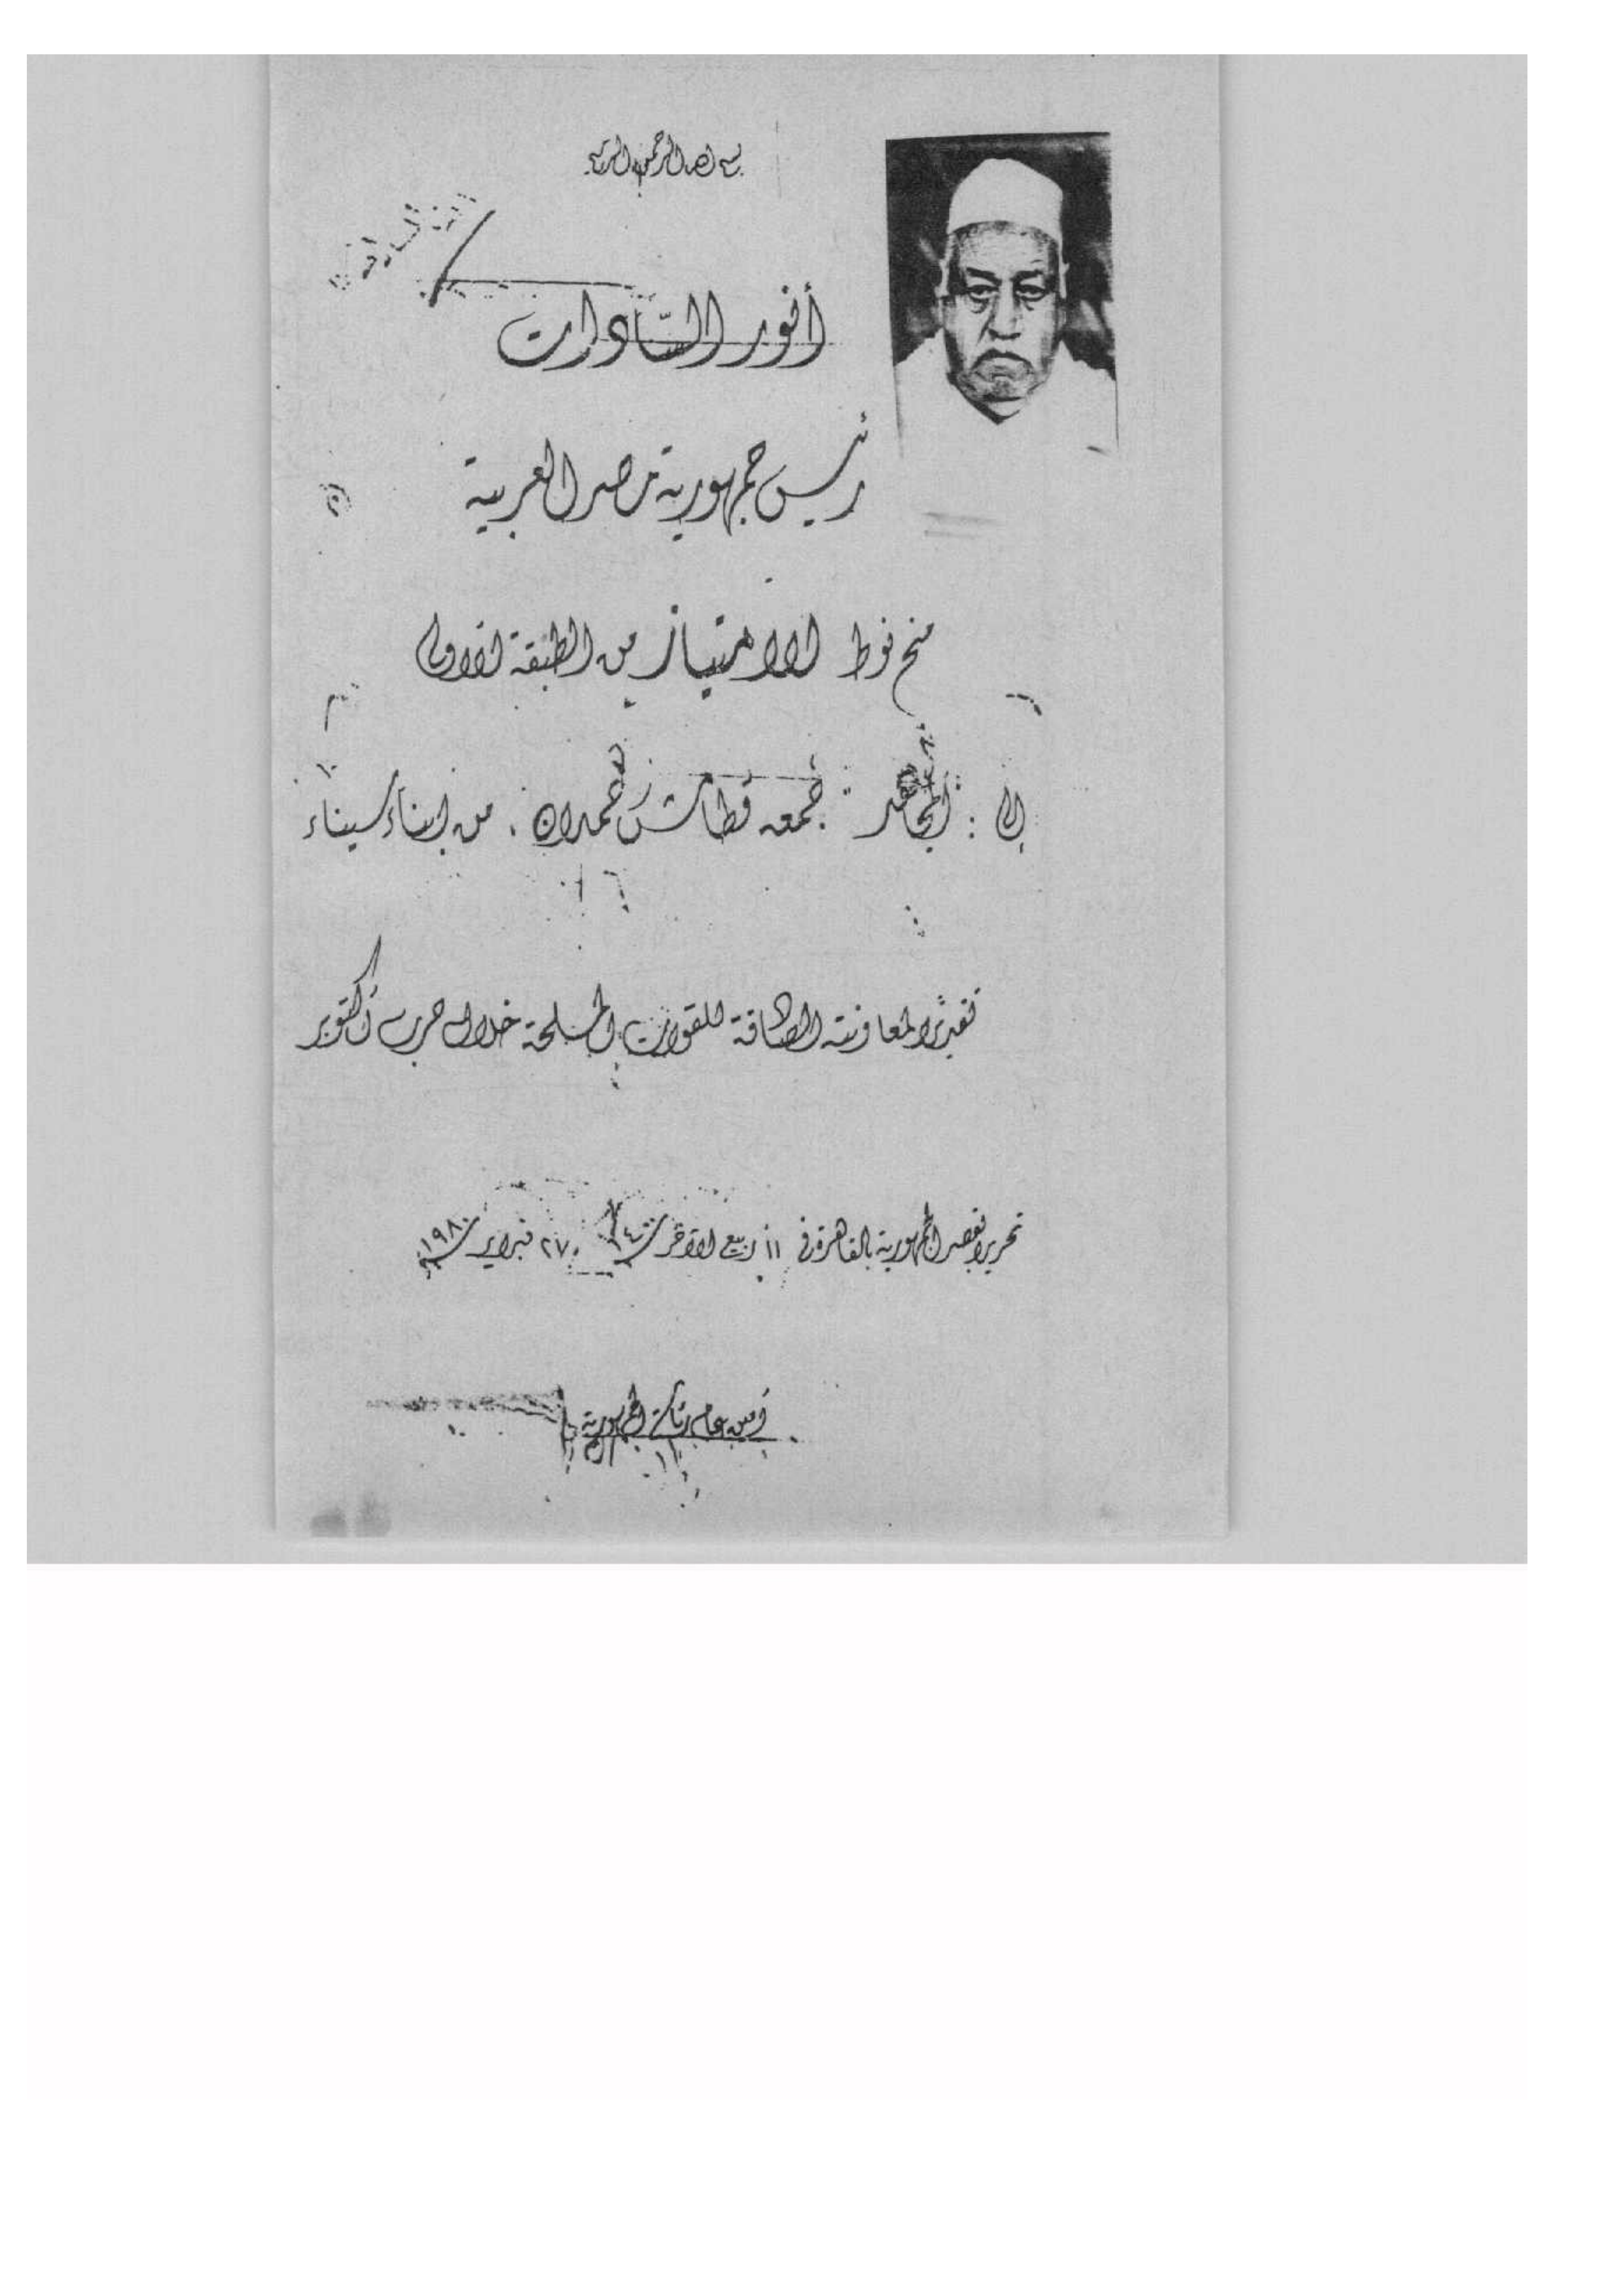 بسم الله الرحمن الرحيم
أنور السادات
رئيس جمهورية مصر العربية
منح نوط الامتياز من الطبقة الأولى
إلى : المجاهد جمعه قطامش حمدان . من ابناء سيناء
تقديرًا لمعاونته الصادقة للقوات المسلحة خلال حرب أكتوبر
تحريرا بقصر الجمهورية بالقاهرة في ١١ ربيع الآخر سنة ١٤٠٠ ٢٧ فبراير سنة ١٩٨٠
أمين عام رئاسة الجمهورية